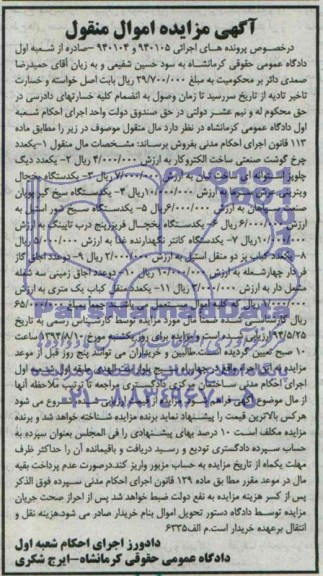 آگهی مزایده اموال منقول
درخصوص پرونده های اجرائی ۹۴۰۱۰۵ و ۹۴۰۱۰۴ -صادره از شعبه اول
دادگاه عمومی حقوقی کرمانشاه به سود حسین شفیعی و به زیان آقای حمیدرضا
صمدی دائر بر محکومیت به مبلغ ۳۹/۷۰۰/۰۰۰ ریال بابت اصل خواسته و خسارت
تاخیر تادیه از تاریخ سررسید تا زمان وصول به انضمام کلیه خسارتهای دادرسی در
حق محکوم له و نیم عشر دولتی در حق صندوق دولت واحد اجرای احکام شعبه
اول دادگاه عمومی کرمانشاه در نظر دارد مال منقول موصوف در زیر را مطابق ماده
۱۱۳ قانون اجرای احکام مدنی بفروش برساند: مشخصات مال منقول ۱-یکعدد
چرخ گوشت صنعتی ساخت الکتروکار به ارزش ۴/۰۰۰/۰۰۰ ریال ۲- یکعدد دیگ
چلوپز استوانه ای ساخت به ارزش ریال ۳- یکدستگاه یخچال
ویترینی به ارزش ۱۰/۰۰۰/۰۰۰ ریال ۴- یکدستگاه سیخ گیر پویان
صنعت به ارزش ۶/۰۰۰/۰۰۰ ریال ۵- یکدستگاه سیخ شور استیل به
ارزش ۶/۰۰۰/۰۰۰ ریال ۶- یکدستگاه یخچال فریزر پنج درب تاپینگ به ارزش
۱۰/۰۰۰/۰۰۰ ریال ۷- یکدستگاه کانتر نگهدارنده غذا به ارزش ۵/۰۰۰/۰۰۰ ریال
۸- یکعدد کباب پز دو منقل استیل به ارزش ۲/۰۰۰/۰۰۰ ریال ۹- دوعدد اجاق گاز
فردار چهارشعله به ارزش ۱۰/۰۰۰/۰۰۰ ریال ۱۰- دوعدد اجاق زمینی سه شعله
مشعل دار به ارزش ۳/۰۰۰/۰۰۰ ریال ۱۱- یکعدد منقل کباب یک متری به ارزش
۱/۰۰۰/۰۰۰ ریال که کلیه اموال مستعمل می باشند جمعا بمبلغ ۶۵/۰۰۰/۰۰۰
ریال کارشناسی شده ضمنا مال مورد مزایده توسط کارشناس رسمی به تاریخ
۹۴/۵/۲۵ ارزیابی شده است و مزایده برای روز یکشنبه مورخ ۱۳۹۴/۸/۱۰ ساعت
۱۰ صبح تعیین گردیده است. طالبین و خریداران می توانند پنج روز قبل از موعد
مزایده به این اجرا واقع در طبقه اول شعبه اول
اجرای احکام مدنی ساختمان مرکزی دادگستری مراجعه تا ترتیب ملاحظه آنها
از مال موضوع آگهی فراهم شود مزایده از شروع می شود
هرکس بالاترین قیمت را پیشنهاد نماید برنده مزایده شناخته خواهد شد و برنده
مزایده مکلف است ۱۰ درصد بهای پیشنهادی را فی المجلس بعنوان سپرده به
حساب سپرده دادگستری تودیع و رسید دریافت و باقیمانده آن را حداکثر ظرف
مهلت یکماه از تاریخ مزایده به حساب مزبور واریز کند. درصورت عدم پرداخت بقیه
مال در موعد مقرر مطابق ماده ۱۲۹ قانون اجرای احکام مدنی سپرده فوق الذکر
پس از کسر هزینه مزایده به نفع دولت ضبط خواهد شد پس از احراز صحت جریان
مزایده توسط دادگاه دستور تحویل اموال بنام خریدار صادر می شود.هزینه نقل و
انتقال برعهده خریدار است.م الف ۶۳۳۵
دادورز اجرای احکام شعبه اول
دادگاه عمومی حقوقی کرمانشاه-ایرج شکری
ParsNamadData
۰۲۱-۸۸۳۴۹۶۷۰